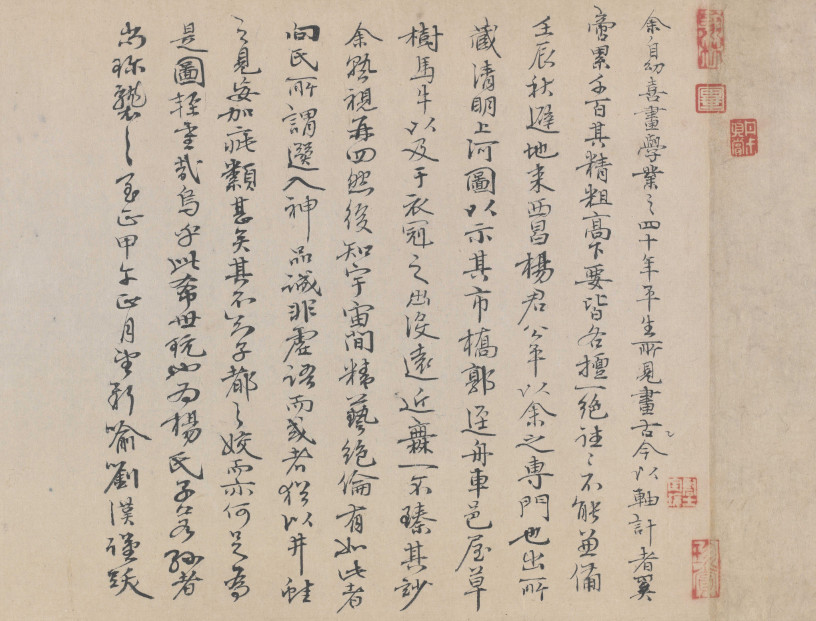 余自幼喜畫學業之四十年平生所見畫古今以軸計者奚
啻累千百其精粗高下要皆各擅一絕往〻不能兼備
壬辰秋避地來西昌楊君公平以余之專門也出所
藏清明上河圖以示其市橋郭逕舟車邑屋草
樹馬牛以及于衣冠之出没遠近無一不臻其妙
余熟視再四然後知宇宙間精藝絕倫有如此者
向氏所謂選入神品誠非虛語而或者猶以井蛙
之見妄加疵纇甚矣其不知子都之姣而亦何足為
是圖輕重哉烏乎此希世玩也為楊氏子若孫者
尚珍襲之至正甲午正月望新喻劉漢謹跋